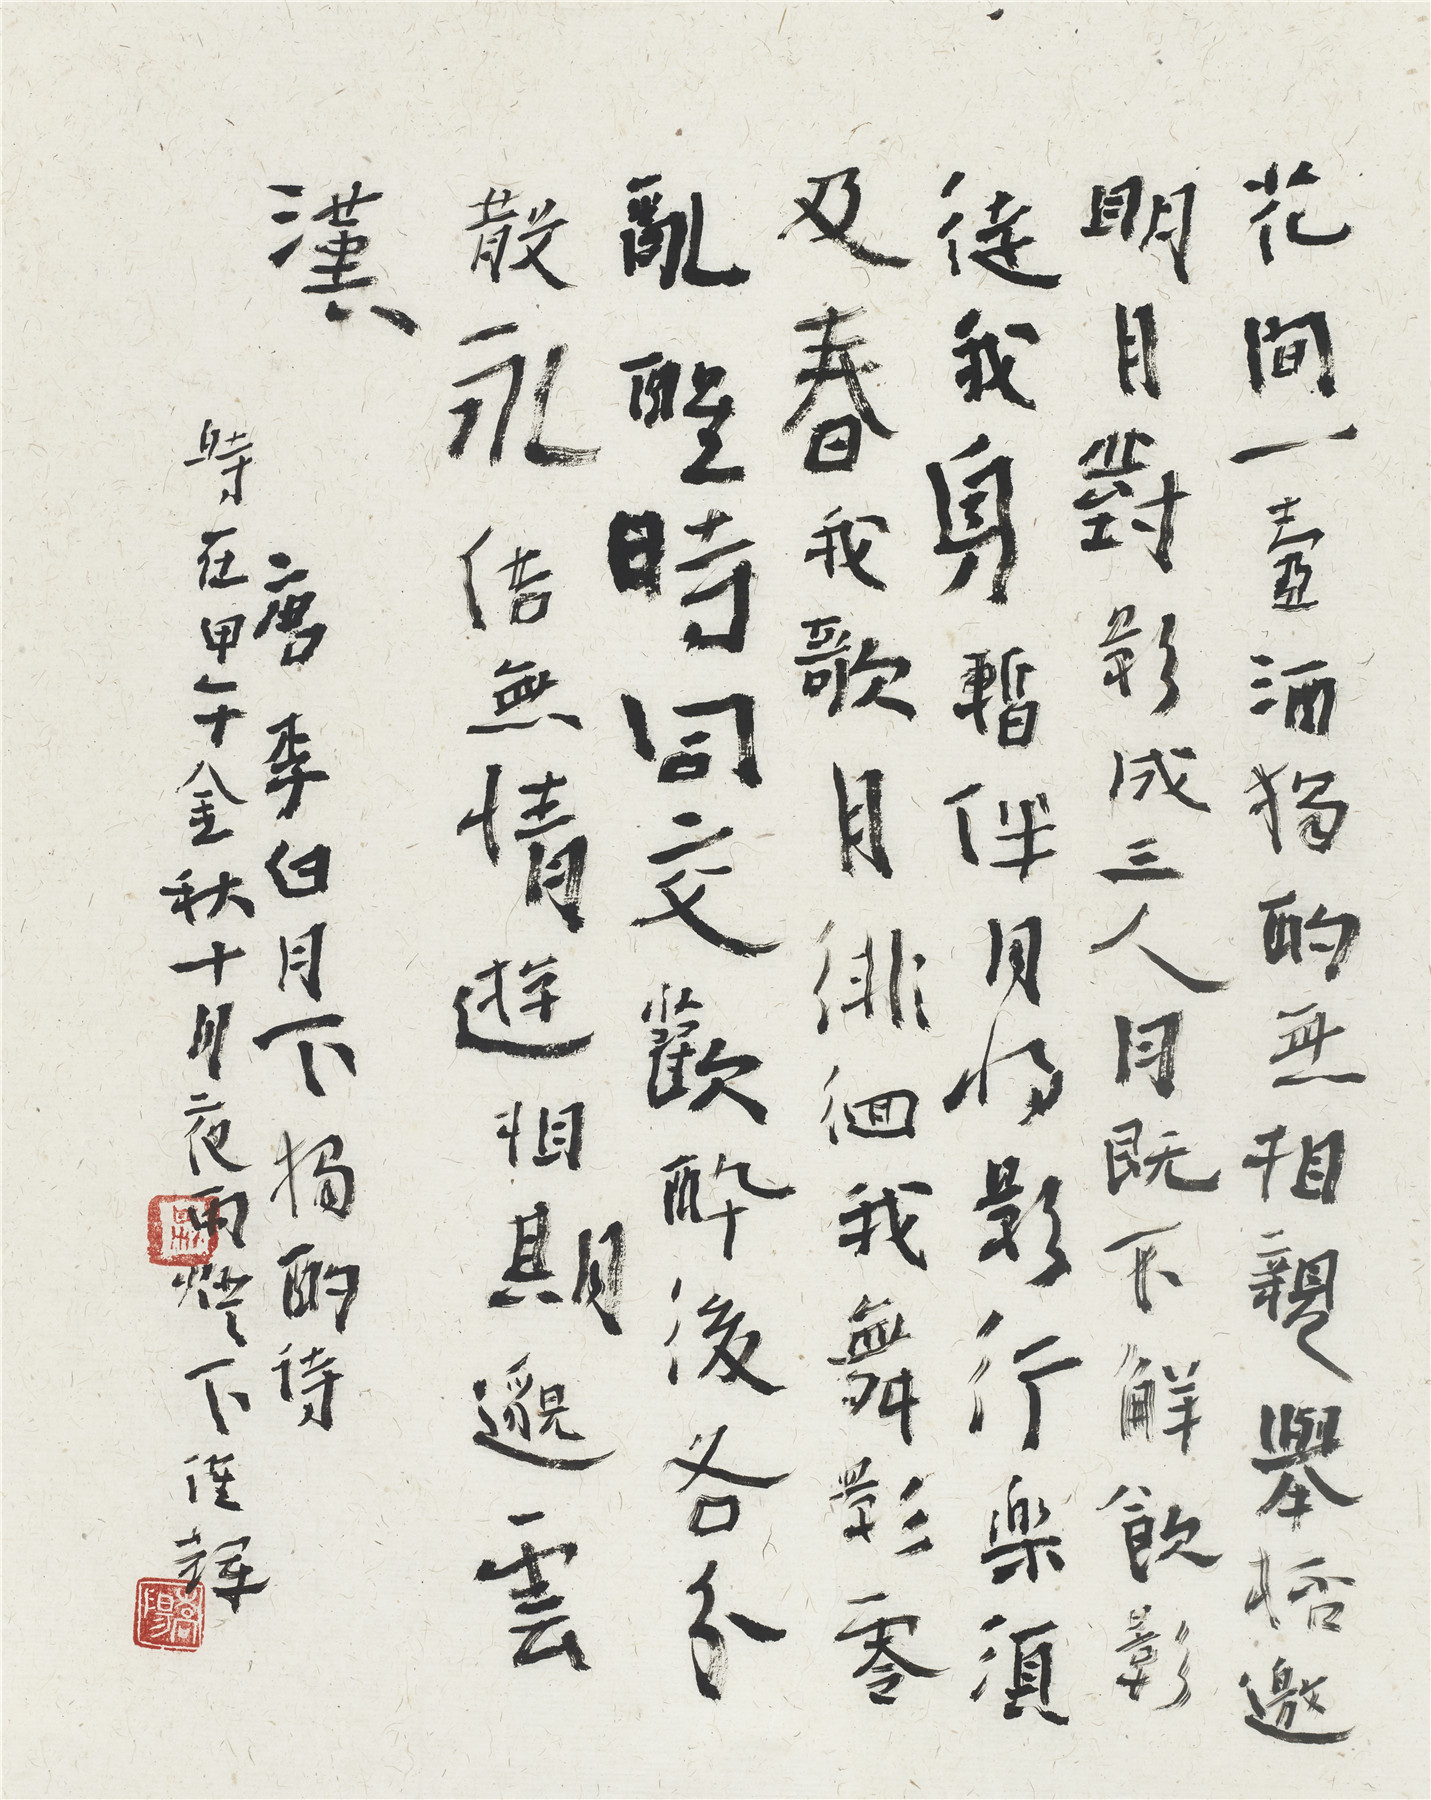 花間一壺酒獨酌無相親舉桮邀
明月對影成三人月既不解飲影
徒我身暫伴月將影行楽須
及春我歌月徘徊我舞影零
亂醒時同交歡醉後各分
散永結無情遊相期邈雲
漢
唐李白月下獨酌詩
時在甲午金秋十月夜雨燈下輝